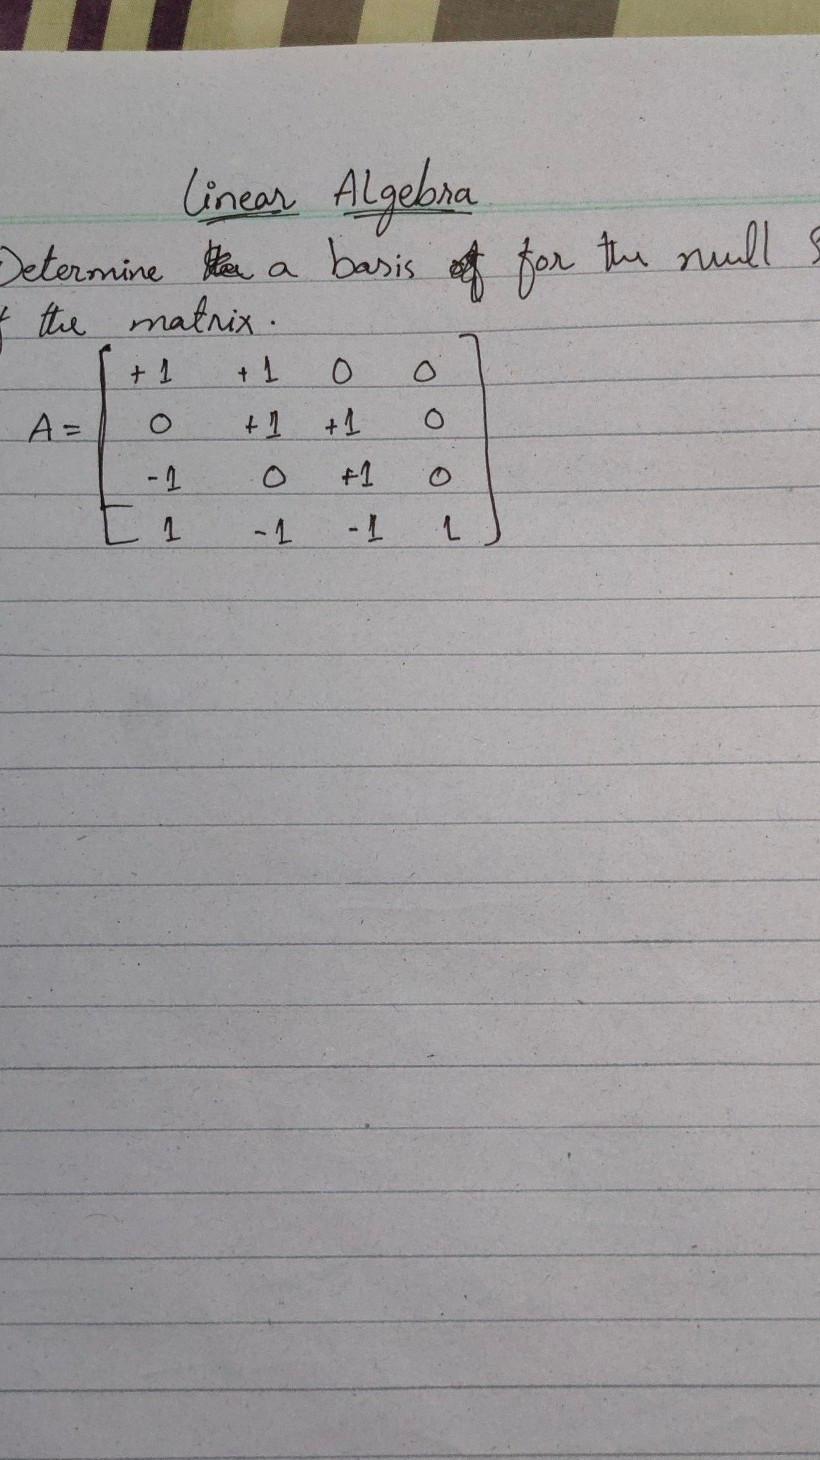 Linear Algebra
Determine a basis for the null
the matrix.
+1 +1 0 0
A = 0 +1 +1 0
-1 0 +1 0
1 -1 -1 1